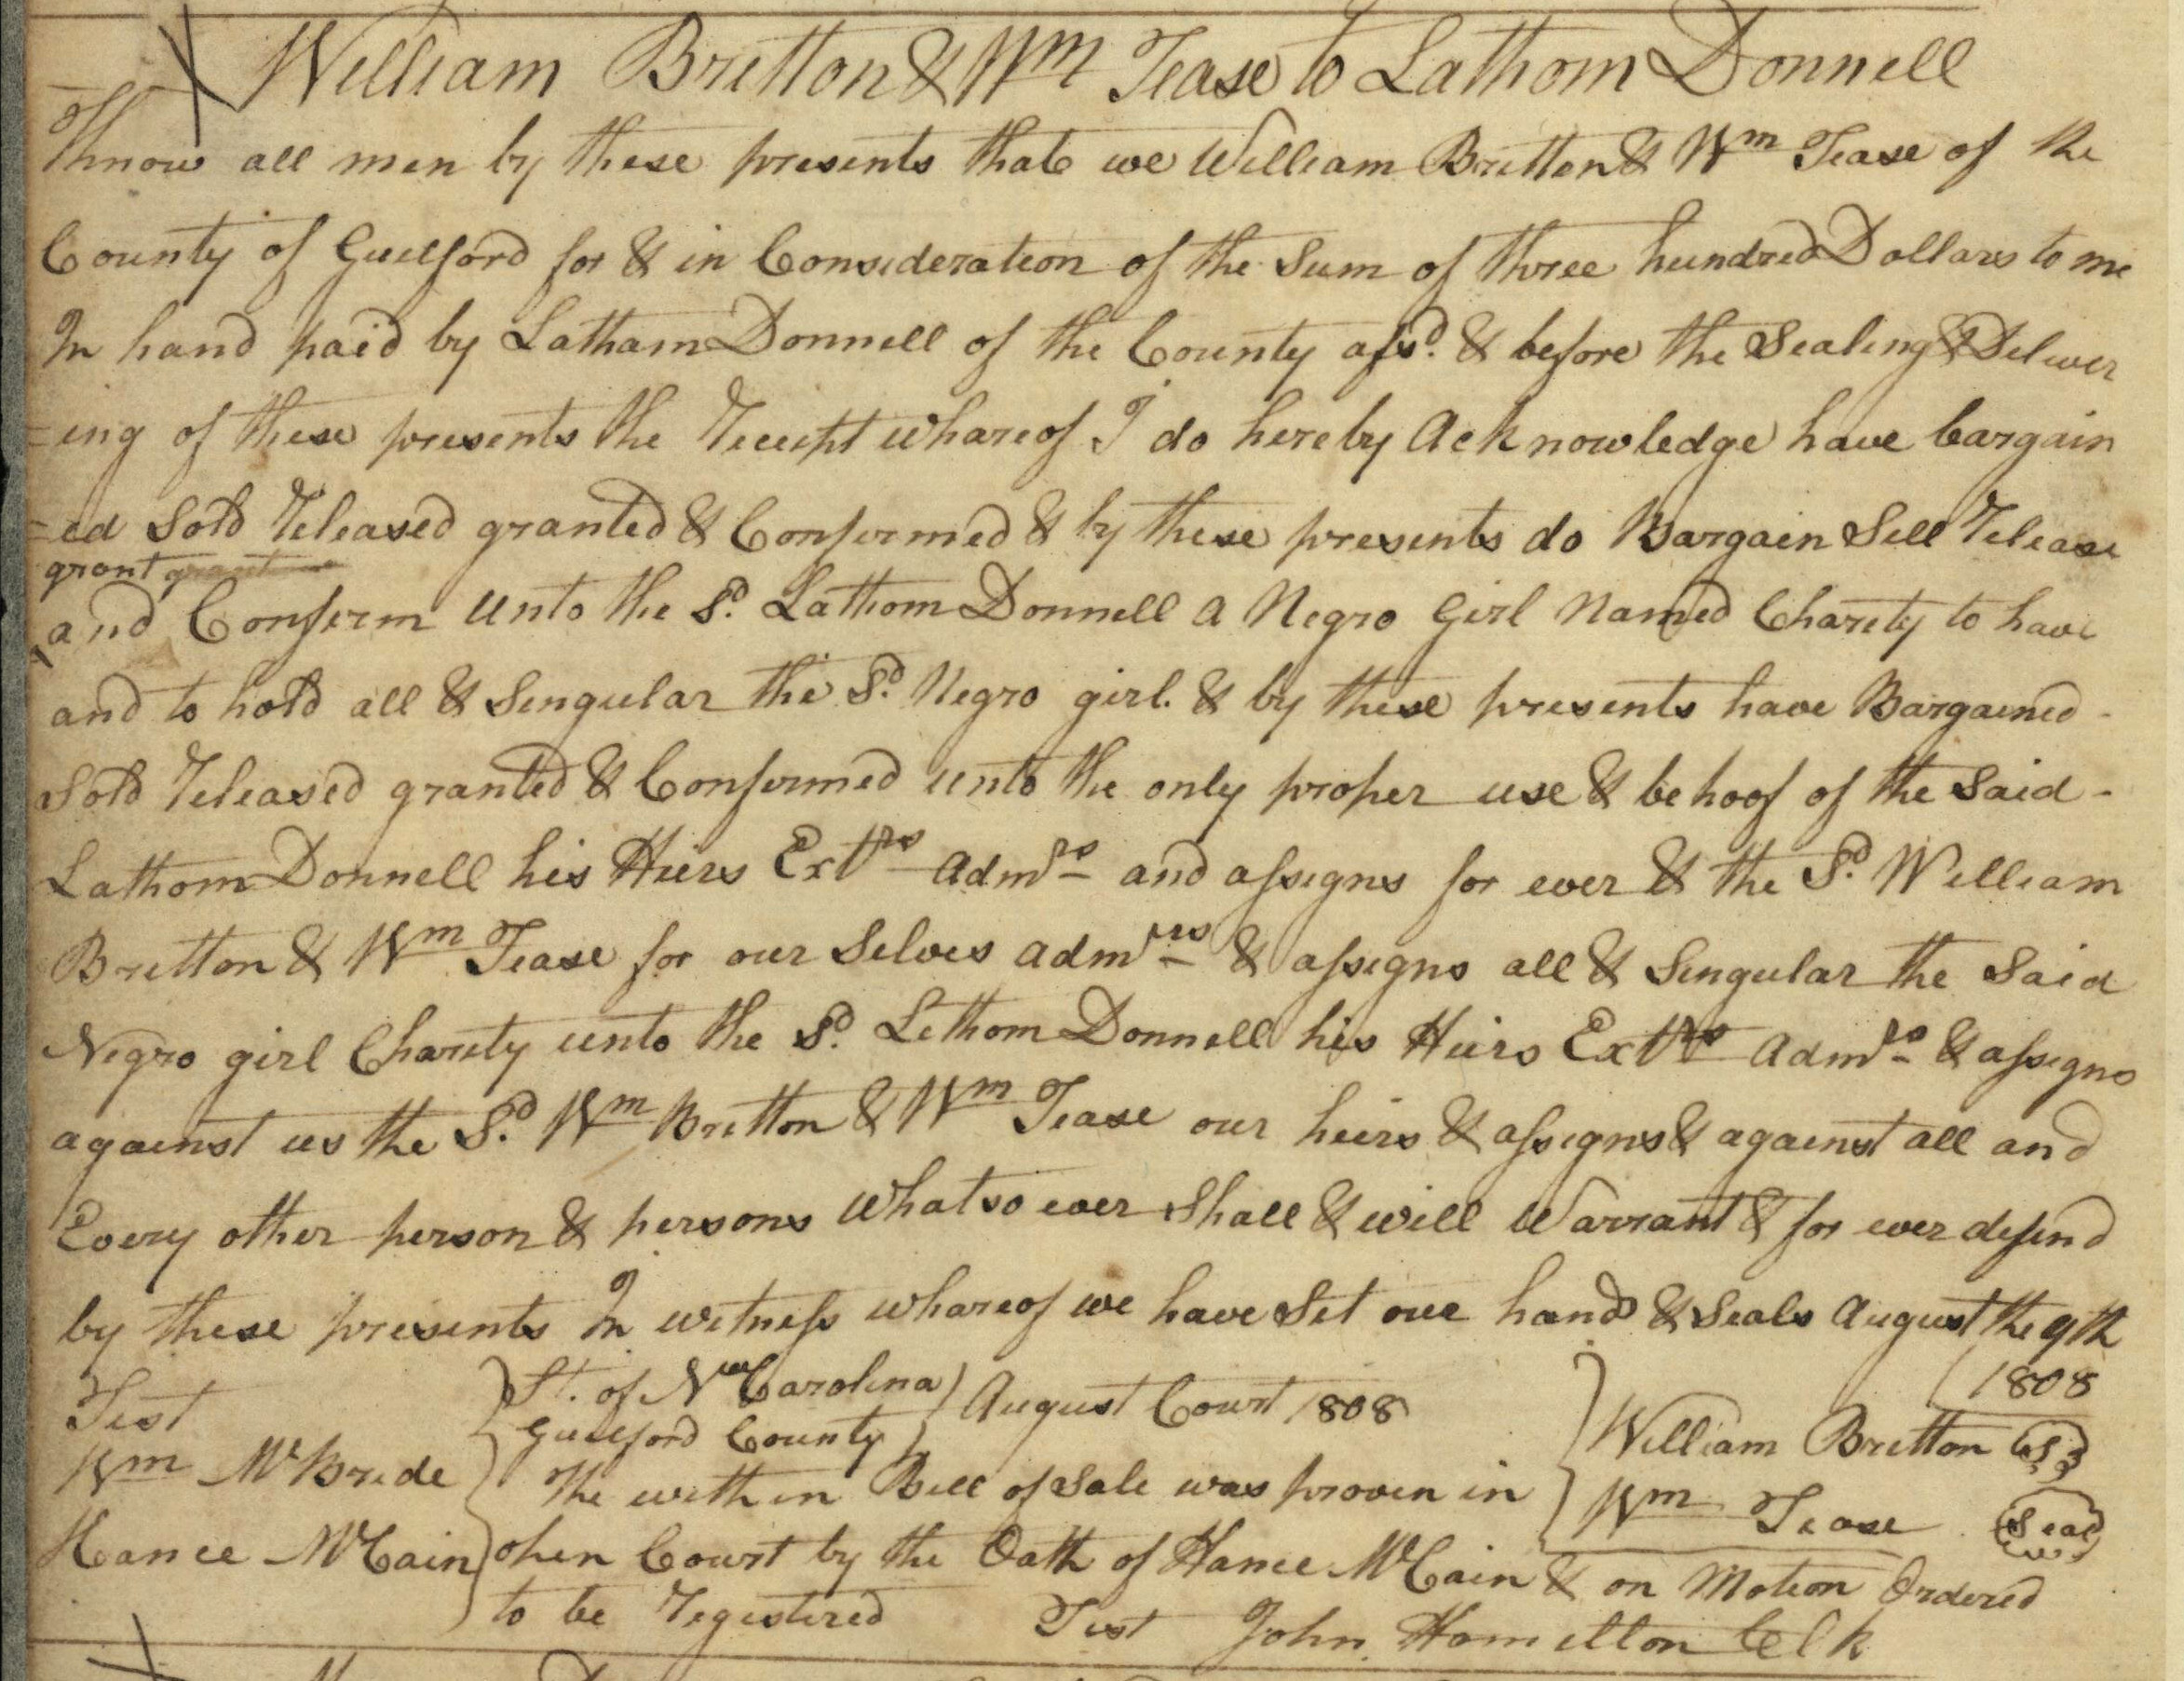 William Britton & Wm Tease to Lathom Donnell
Know all men by these presents that we William Britton & Wm Tease of the
County of Guilford for & in Consideration of the Sum of three hundred Dollars to me
In hand paid by Latham Donnell of the County afsd. & before the Sealing & Deliver
=ing of these presents the Receipt whareof I do hereby Acknowledge have bargain
=ed Sold Released granted & Confirmed & by these presents do Bargain Sell Release
grant grant
and Confirm unto the Sd. Lathom Donnell a Negro Girl Named Charity to have
and to hold all & Singular the Sd. Negro girl. & by these presents have Bargained -
Sold Released granted & Confirmed unto the only proper use & behoof of the Said -
Lathom Donnell his Hiers Extrs Admrs and assigns for ever & the Sd. William
Britton & Wm Tease for our Selves admrs & assigns all & Singular the Said
Negro girl Charity unto the Sd. Lethom Donnell his Heirs Extrs Admrs & assigns
against us the Sd. Wm Britton & Wm Tease our heirs & assigns & against all and
Every other person & persons whatso ever Shall & will Warrant & for ever defend
by these presents In witness whareof we have Set our hands & Seals August the 9th
1808
Test
St. of No Carolina
Guilford County
August Court 1808
William Britton
Wm McBride
The within Bill of Sale was proven in
Wm Tease Seal
Hance McCain
open Court by the Oath of Hance McCain & on Motion Ordered
to be Registered Test John Hamilton Clk